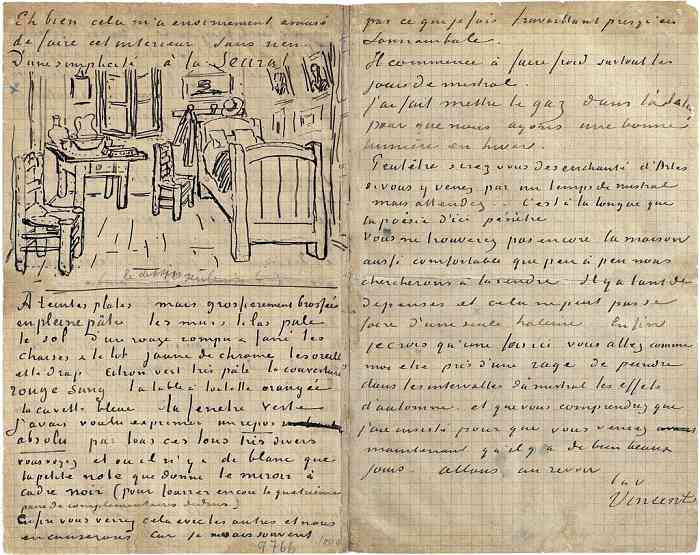 Eh bien cela m'a enormement amusé
de faire cet interieur sans rien
D'une simplicité à la Seurat
à teintes plates mais grossierement brossées
en pleine pâte les murs lilas pale
le sol d'un rouge rompu & fané les
chaises & le lit jaune de chrome les oreillers
et le drap citron vert très pâle la couverture
rouge sang la table à toilette orangée
la cuvette bleue la fenetre verte
J'avais voulu exprimer un repos
absolu par tous ces tons très divers
vous voyez et où il n'y a de blanc que
la petite note que donne le miroir à
cadre noir (pour fourrer encore la quatrième
paire de complementaires dedans)
Enfin vous verrez cela avec les autres et nous
en causerons car je ne sais souvent
9766
pas ce que je fais travaillant presqu'en
somnambule.
Il commence à faire froid surtout les
jours de mistral.
J'ai fait mettre le gaz dans l'atelier
pour que nous ayons une bonne
lumière en hiver.
Peutêtre serez vous desenchanté d'Arles
si vous y venez par un temps de mistral
mais attendez.. C'est à la longue que
la poésie d'ici pénètre
Vous ne trouverez pas encore la maison
aussi comfortable que peu à peu nous
chercherons à la rendre. Il y a tant de
depenses et cela ne peut pas se
faire d'une seule haleine. Enfin
je crois qu'une fois ici vous allez comme
moi etre pris d'une rage de peindre
dans les intervalles du mistral les effets
d'automne. et que vous comprendrez que
j'ai insisté pour que vous veniez
maintenant qu'il y a de bien beaux
jours. allons au revoir
t.a.v
Vincent